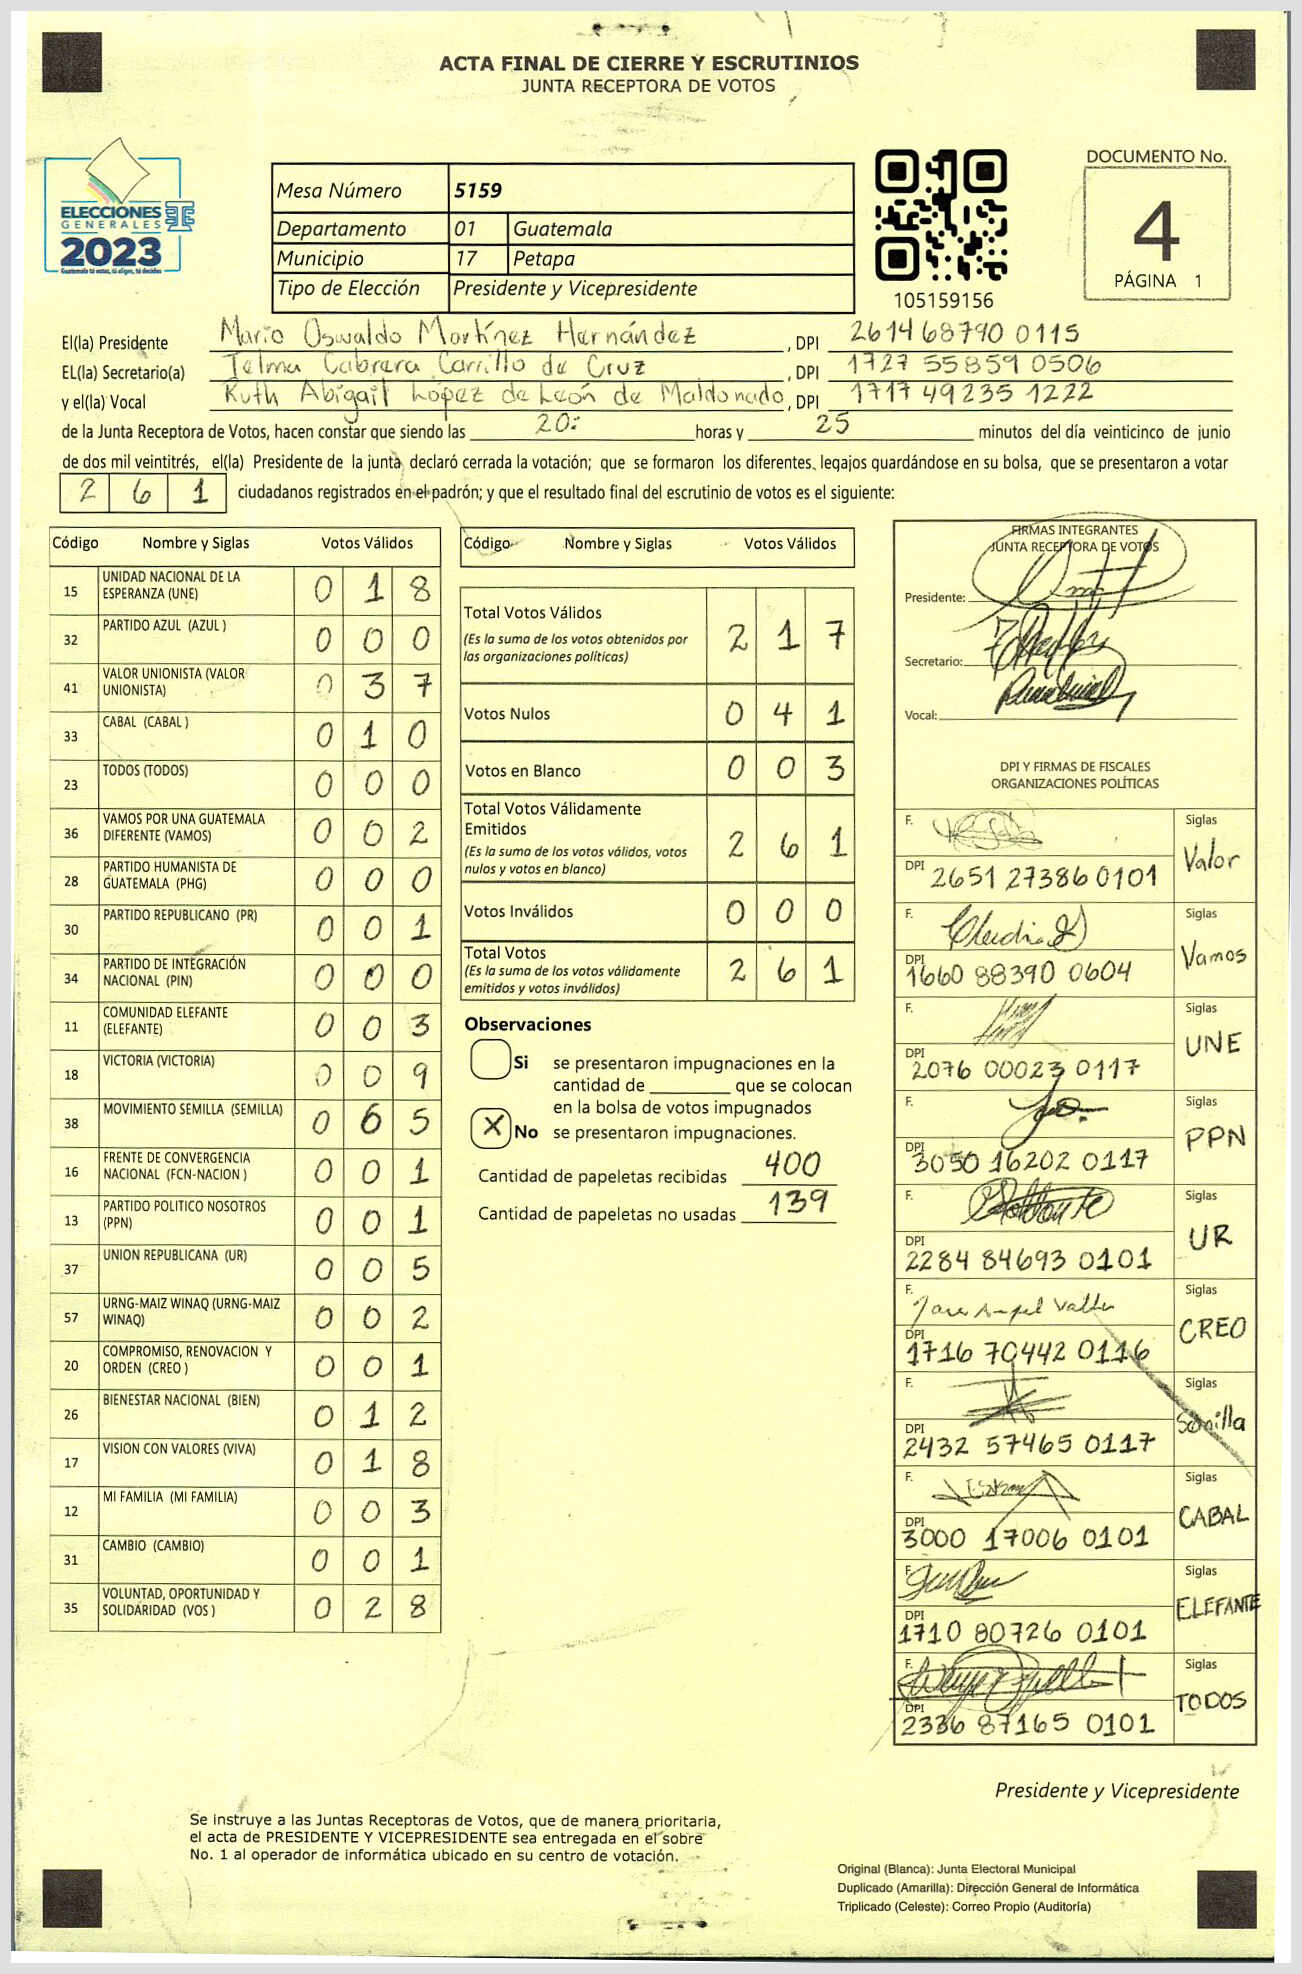 ACTA FINAL DE CIERRE Y ESCRUTINIOS
JUNTA RECEPTORA DE VOTOS
ELECCIONES
GENERALES
2023
Guatemala tú votas, tú eliges, tú decides
Mesa Número 5159
Departamento 01 Guatemala
Municipio 17 Petapa
Tipo de Elección Presidente y Vicepresidente
105159156
DOCUMENTO No.
4
PÁGINA 1
El(la) Presidente Mario Oswaldo Martínez Hernández, DPI 2614 68790 0115
EL(la) Secretario(a) Telma Cabrera Carrillo de Cruz, DPI 1727 55859 0506
y el(la) Vocal Ruth Abigail López de León de Maldonado, DPI 1717 49235 1222
de la Junta Receptora de Votos, hacen constar que siendo las 20: horas y 25 minutos del día veinticinco de junio
de dos mil veintitrés, el(la) Presidente de la junta declaró cerrada la votación; que se formaron los diferentes legajos guardándose en su bolsa, que se presentaron a votar
2 6 1 ciudadanos registrados en el padrón; y que el resultado final del escrutinio de votos es el siguiente:
Código Nombre y Siglas Votos Válidos
15 UNIDAD NACIONAL DE LA
ESPERANZA (UNE) 0 1 8
32 PARTIDO AZUL (AZUL ) 0 0 0
41 VALOR UNIONISTA (VALOR
UNIONISTA) 0 3 7
33 CABAL (CABAL ) 0 1 0
23 TODOS (TODOS) 0 0 0
36 VAMOS POR UNA GUATEMALA
DIFERENTE (VAMOS) 0 0 2
28 PARTIDO HUMANISTA DE
GUATEMALA (PHG) 0 0 0
30 PARTIDO REPUBLICANO (PR) 0 0 1
34 PARTIDO DE INTEGRACIÓN
NACIONAL (PIN) 0 0 0
11 COMUNIDAD ELEFANTE
(ELEFANTE) 0 0 3
18 VICTORIA (VICTORIA) 0 0 9
38 MOVIMIENTO SEMILLA (SEMILLA) 0 6 5
16 FRENTE DE CONVERGENCIA
NACIONAL (FCN-NACION ) 0 0 1
13 PARTIDO POLITICO NOSOTROS
(PPN) 0 0 1
37 UNION REPUBLICANA (UR) 0 0 5
57 URNG-MAIZ WINAQ (URNG-MAIZ
WINAQ) 0 0 2
20 COMPROMISO, RENOVACION Y
ORDEN (CREO ) 0 0 1
26 BIENESTAR NACIONAL (BIEN) 0 1 2
17 VISION CON VALORES (VIVA) 0 1 8
12 MI FAMILIA (MI FAMILIA) 0 0 3
31 CAMBIO (CAMBIO) 0 0 1
35 VOLUNTAD, OPORTUNIDAD Y
SOLIDARIDAD (VOS ) 0 2 8
Código Nombre y Siglas Votos Válidos
Total Votos Válidos 2 1 7
(Es la suma de los votos obtenidos por
las organizaciones políticas)
Votos Nulos 0 4 1
Votos en Blanco 0 0 3
Total Votos Válidamente
Emitidos 2 6 1
(Es la suma de los votos válidos, votos
nulos y votos en blanco)
Votos Inválidos 0 0 0
Total Votos 2 6 1
(Es la suma de los votos válidamente
emitidos y votos inválidos)
Observaciones
Si se presentaron impugnaciones en la
cantidad de ________ que se colocan
en la bolsa de votos impugnados
X No se presentaron impugnaciones.
Cantidad de papeletas recibidas 400
Cantidad de papeletas no usadas 139
FIRMAS INTEGRANTES
JUNTA RECEPTORA DE VOTOS
Presidente:
Secretario:
Vocal:
DPI Y FIRMAS DE FISCALES
ORGANIZACIONES POLÍTICAS
F. Siglas
DPI 2651 27386 0101 Valor
F. Siglas
DPI 1660 88390 0604 Vamos
F. Siglas
DPI 2076 00023 0117 UNE
F. Siglas
DPI 3050 16202 0117 PPN
F. Siglas
DPI 2284 84693 0101 UR
F. Siglas
DPI 1716 70442 0116 CREO
F. Siglas
DPI 2432 57465 0117 Semilla
F. Siglas
DPI 3000 17006 0101 CABAL
F. Siglas
DPI 1710 80726 0101 ELEFANTE
F. Siglas
DPI 2336 87165 0101 TODOS
Presidente y Vicepresidente
Se instruye a las Juntas Receptoras de Votos, que de manera prioritaria,
el acta de PRESIDENTE Y VICEPRESIDENTE sea entregada en el sobre
No. 1 al operador de informática ubicado en su centro de votación.
Original (Blanca): Junta Electoral Municipal
Duplicado (Amarilla): Dirección General de Informática
Triplicado (Celeste): Correo Propio (Auditoría)